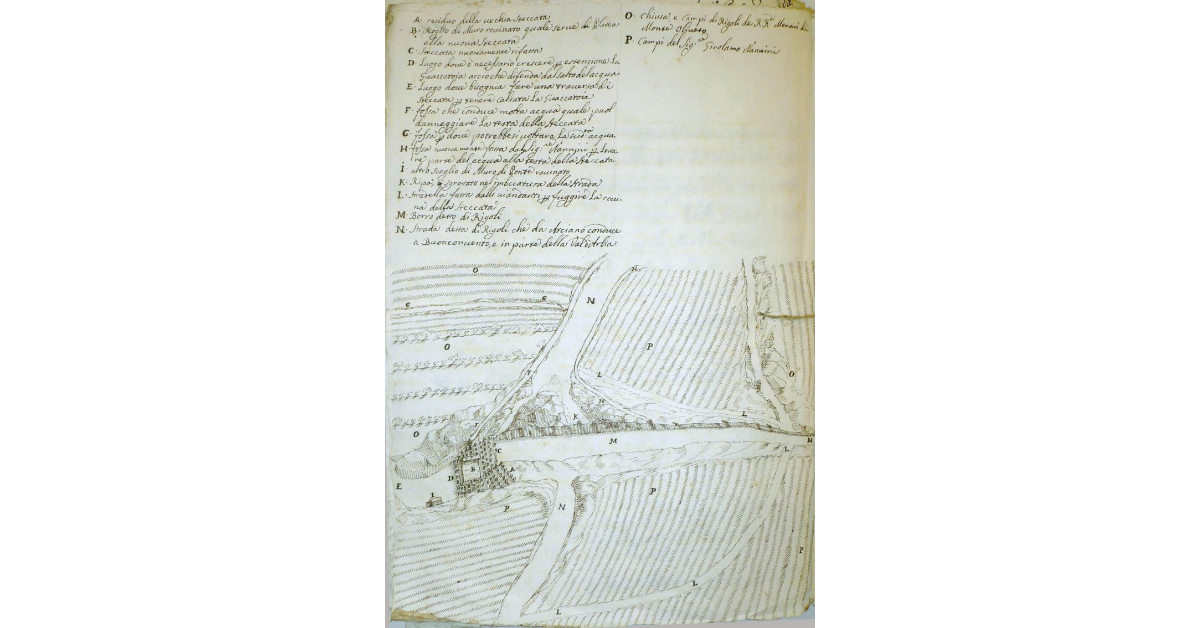 A· residuo della vechia steccata
B· scoglio di Muro rovinato quale serve di Platea
alla nuova steccata
C· steccata nuovamente rifatta
D· Luogo dove è necessario crescere ꝑ estencione La
Guaccatoia accio che difenda dal salto del acqua
E· Luogo dove bisognia fare una traversa di
steccata ꝑ tenere calzata La Guaccatoia
F· fossa che conduce molta acqua quale puol
danneggiare La testa della steccata
G· fossa ꝑ dove potrebbesi voltare La acqua
H· fossa nuovamente fatta dal Sig.re Nannini ꝑ Leva
re parte del acqua alla testa della steccata
I· altro scoglio di Muro di Ponte rovinato
K· Ripa sgrotato nel inboccatura della strada
L· stradella fatta dalli viandanti ꝑ fuggire La rovi
na della steccata
M· Borro detto di Rigoli
N· strada detta di Rigoli che da Asciano conduce
a Buonconvento, e in parte della Val d'Arbia
O· chiusa, e Campi di Rigoli de R.R. Monaci di
Monte Oliveto
P· Campi del Sig.re Girolamo Nannini
O
H
G G
N
O
P
O
F
L
M
L
K
O
M
H
C
L
B
A
D
E
I
P
P
N
P
L
L